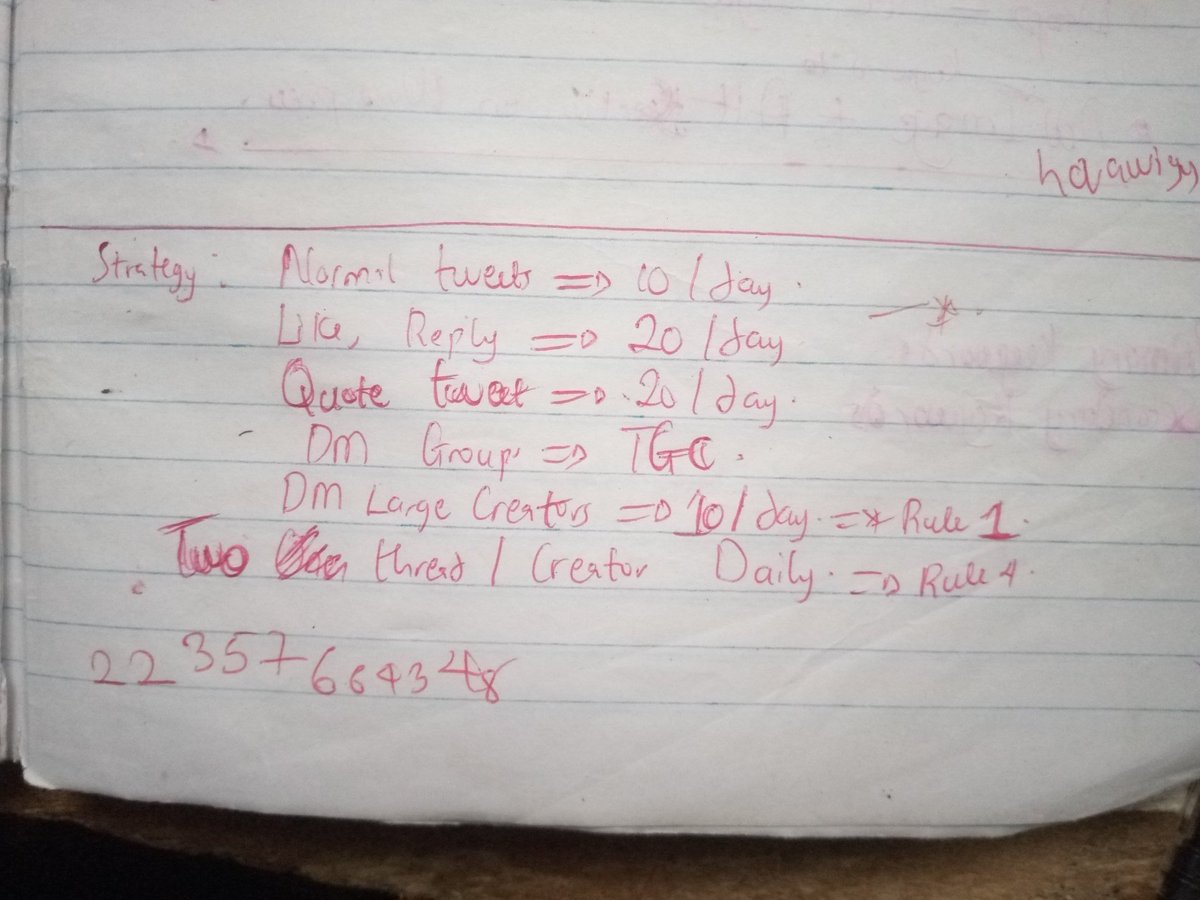 Strategy: Normal tweets => 10 / day.
Like, Reply => 20 / day
Quote tweet => 20 / day.
DM Group => TGC.
DM Large Creators => 10 / day. => Rule 1.
Two thread / Creator Daily. => Rule 4.
22 357 6643 48